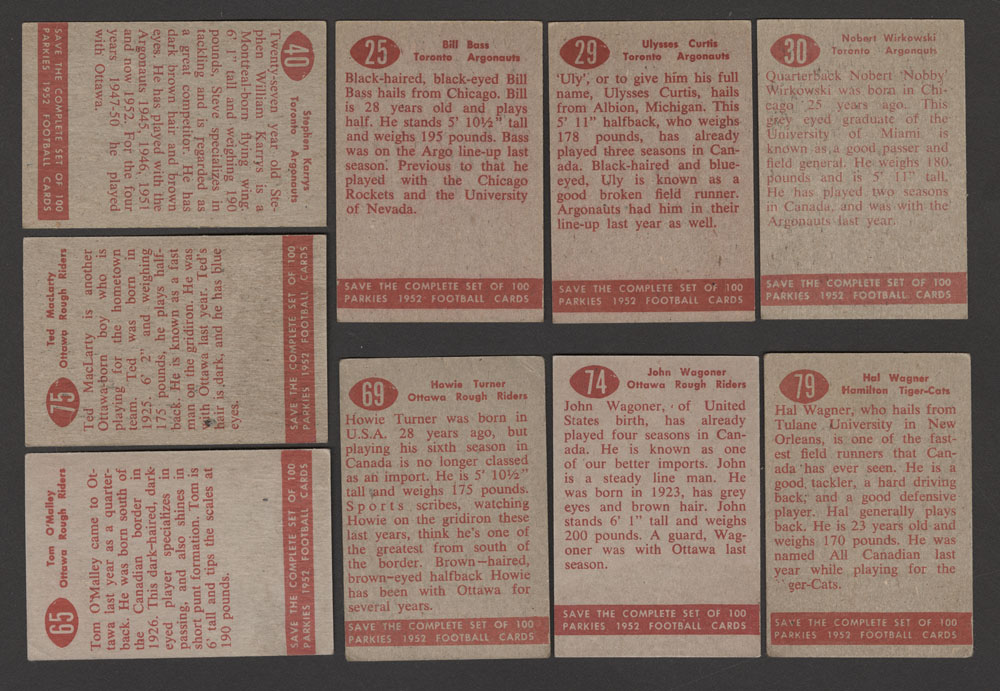 40
Stephen Karrys
Toronto Argonauts
Twenty-seven year old Ste-
phen William Karrys is a
Montreal-born flying wing.
6' 1" tall and weighing 190
pounds, Steve specializes in
tackling and is regarded as
a great competitor. He has
dark brown hair and brown
eyes. He has played with the
Argonauts 1945, 1946, 1951
and now 1952. For the four
years 1947-50 he played
with Ottawa.
SAVE THE COMPLETE SET OF 100
PARKIES 1952 FOOTBALL CARDS
25
Bill Bass
Toronto Argonauts
Black-haired, black-eyed Bill
Bass hails from Chicago. Bill
is 28 years old and plays
half. He stands 5' 10½" tall
and weighs 195 pounds. Bass
was on the Argo line-up last
season. Previous to that he
played with the Chicago
Rockets and the University
of Nevada.
SAVE THE COMPLETE SET OF 100
PARKIES 1952 FOOTBALL CARDS
29
Ulysses Curtis
Toronto Argonauts
'Uly', or to give him his full
name, Ulysses Curtis, hails
from Albion, Michigan. This
5' 11" halfback, who weighs
178 pounds, has already
played three seasons in Ca-
nada. Black-haired and blue-
eyed, Uly is known as a
good broken field runner.
Argonauts had him in their
line-up last year as well.
SAVE THE COMPLETE SET OF 100
PARKIES 1952 FOOTBALL CARDS
30
Nobert Wirkowski
Toronto Argonauts
Quarterback Nobert 'Nobby'
Wirkowski was born in Chi-
cago 25 years ago. This
grey eyed graduate of the
University of Miami is
known as a good passer and
field general. He weighs 180
pounds and is 5' 11" tall.
He has played two seasons
in Canada, and was with the
Argonauts last year.
SAVE THE COMPLETE SET OF 100
PARKIES 1952 FOOTBALL CARDS
75
Ted MacLarty
Ottawa Rough Riders
Ted MacLarty is another
Ottawa-born boy who is
playing for the hometown
team. Ted was born in
1925. 6' 2" and weighing
175 pounds, he plays half-
back. He is known as a fast
man on the gridiron. He was
with Ottawa last year. Ted's
hair is dark, and he has blue
eyes.
SAVE THE COMPLETE SET OF 100
PARKIES 1952 FOOTBALL CARDS
65
Tom O'Malley
Ottawa Rough Riders
Tom O'Malley came to Ot-
tawa last year as a quarter-
back. He was born south of
the Canadian border in
1926. This dark-haired, dark-
eyed player specializes in
passing, and also shines in
short punt formation. Tom is
6' tall and tips the scales at
190 pounds.
SAVE THE COMPLETE SET OF 100
PARKIES 1952 FOOTBALL CARDS
69
Howie Turner
Ottawa Rough Riders
Howie Turner was born in
U.S.A. 28 years ago, but
playing his sixth season in
Canada is no longer classed
as an import. He is 5' 10½"
tall and weighs 175 pounds.
Sports scribes, watching
Howie on the gridiron these
last years, think he's one of
the greatest from south of
the border. Brown-haired,
brown-eyed halfback Howie
has been with Ottawa for
several years.
SAVE THE COMPLETE SET OF 100
PARKIES 1952 FOOTBALL CARDS
74
John Wagoner
Ottawa Rough Riders
John Wagoner, of United
States birth, has already
played four seasons in Can-
ada. He is known as one
of our better imports. John
is a steady line man. He
was born in 1923, has grey
eyes and brown hair. John
stands 6' 1" tall and weighs
200 pounds. A guard, Wag-
oner was with Ottawa last
season.
SAVE THE COMPLETE SET OF 100
PARKIES 1952 FOOTBALL CARDS
79
Hal Wagner
Hamilton Tiger-Cats
Hal Wagner, who hails from
Tulane University in New
Orleans, is one of the fast-
est field runners that Can-
ada has ever seen. He is a
good tackler, a hard driving
back, and a good defensive
player. Hal generally plays
back. He is 23 years old and
weighs 170 pounds. He was
named All Canadian last
year while playing for the
ger-Cats.
SAVE THE COMPLETE SET OF 100
PARKIES 1952 FOOTBALL CARDS